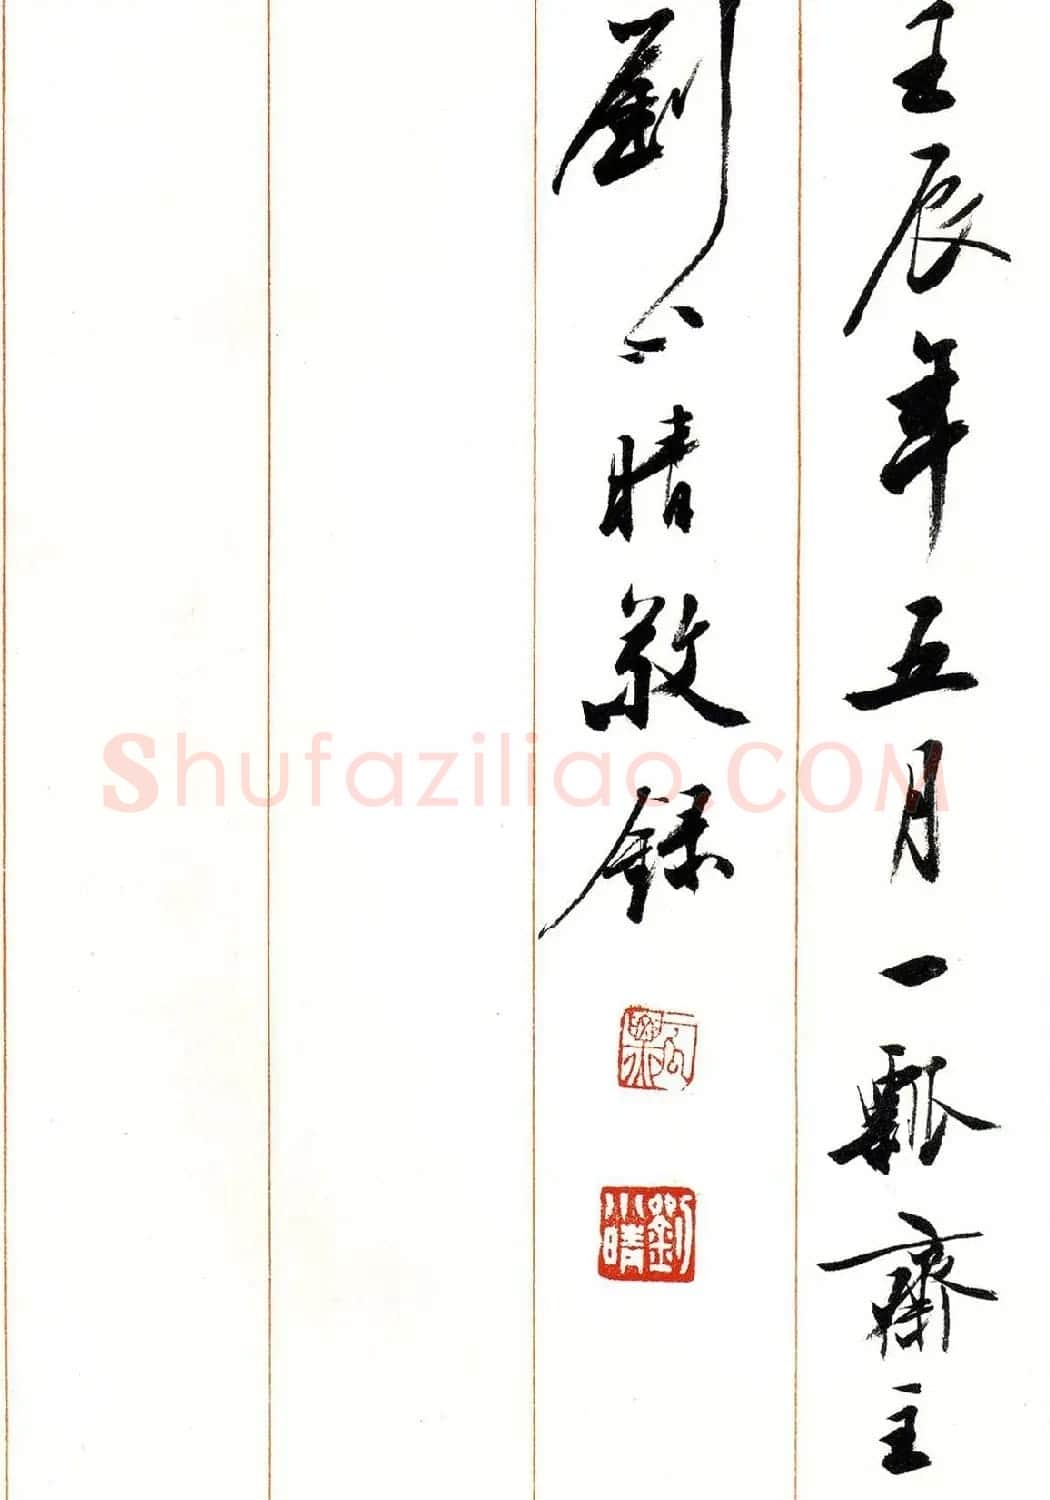 壬辰年五月一瓢齋主
劉小晴敬錄
劉小晴
Shufaziliao.COM